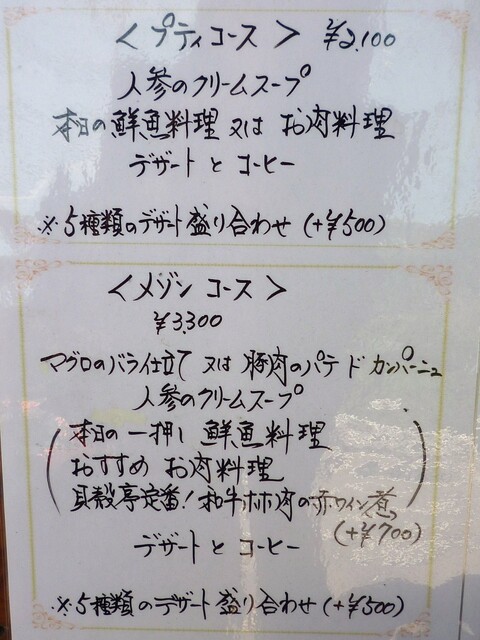 ＜プティコース＞ ¥2,100
人参のクリームスープ
本日の鮮魚料理 又は お肉料理
デザート と コーヒー
※5種類のデザート盛り合わせ (+¥500)
＜メゾン コース＞
¥3,300
マグロのバラ仕立て 又は 豚肉のパテ ド カンパーニュ
人参のクリームスープ
本日の一押し 鮮魚料理
おすすめ お肉料理
貝殻亭定番！和牛ホホ肉の赤ワイン煮
(+¥700)
デザート と コーヒー
※5種類のデザート盛り合わせ (+¥500)